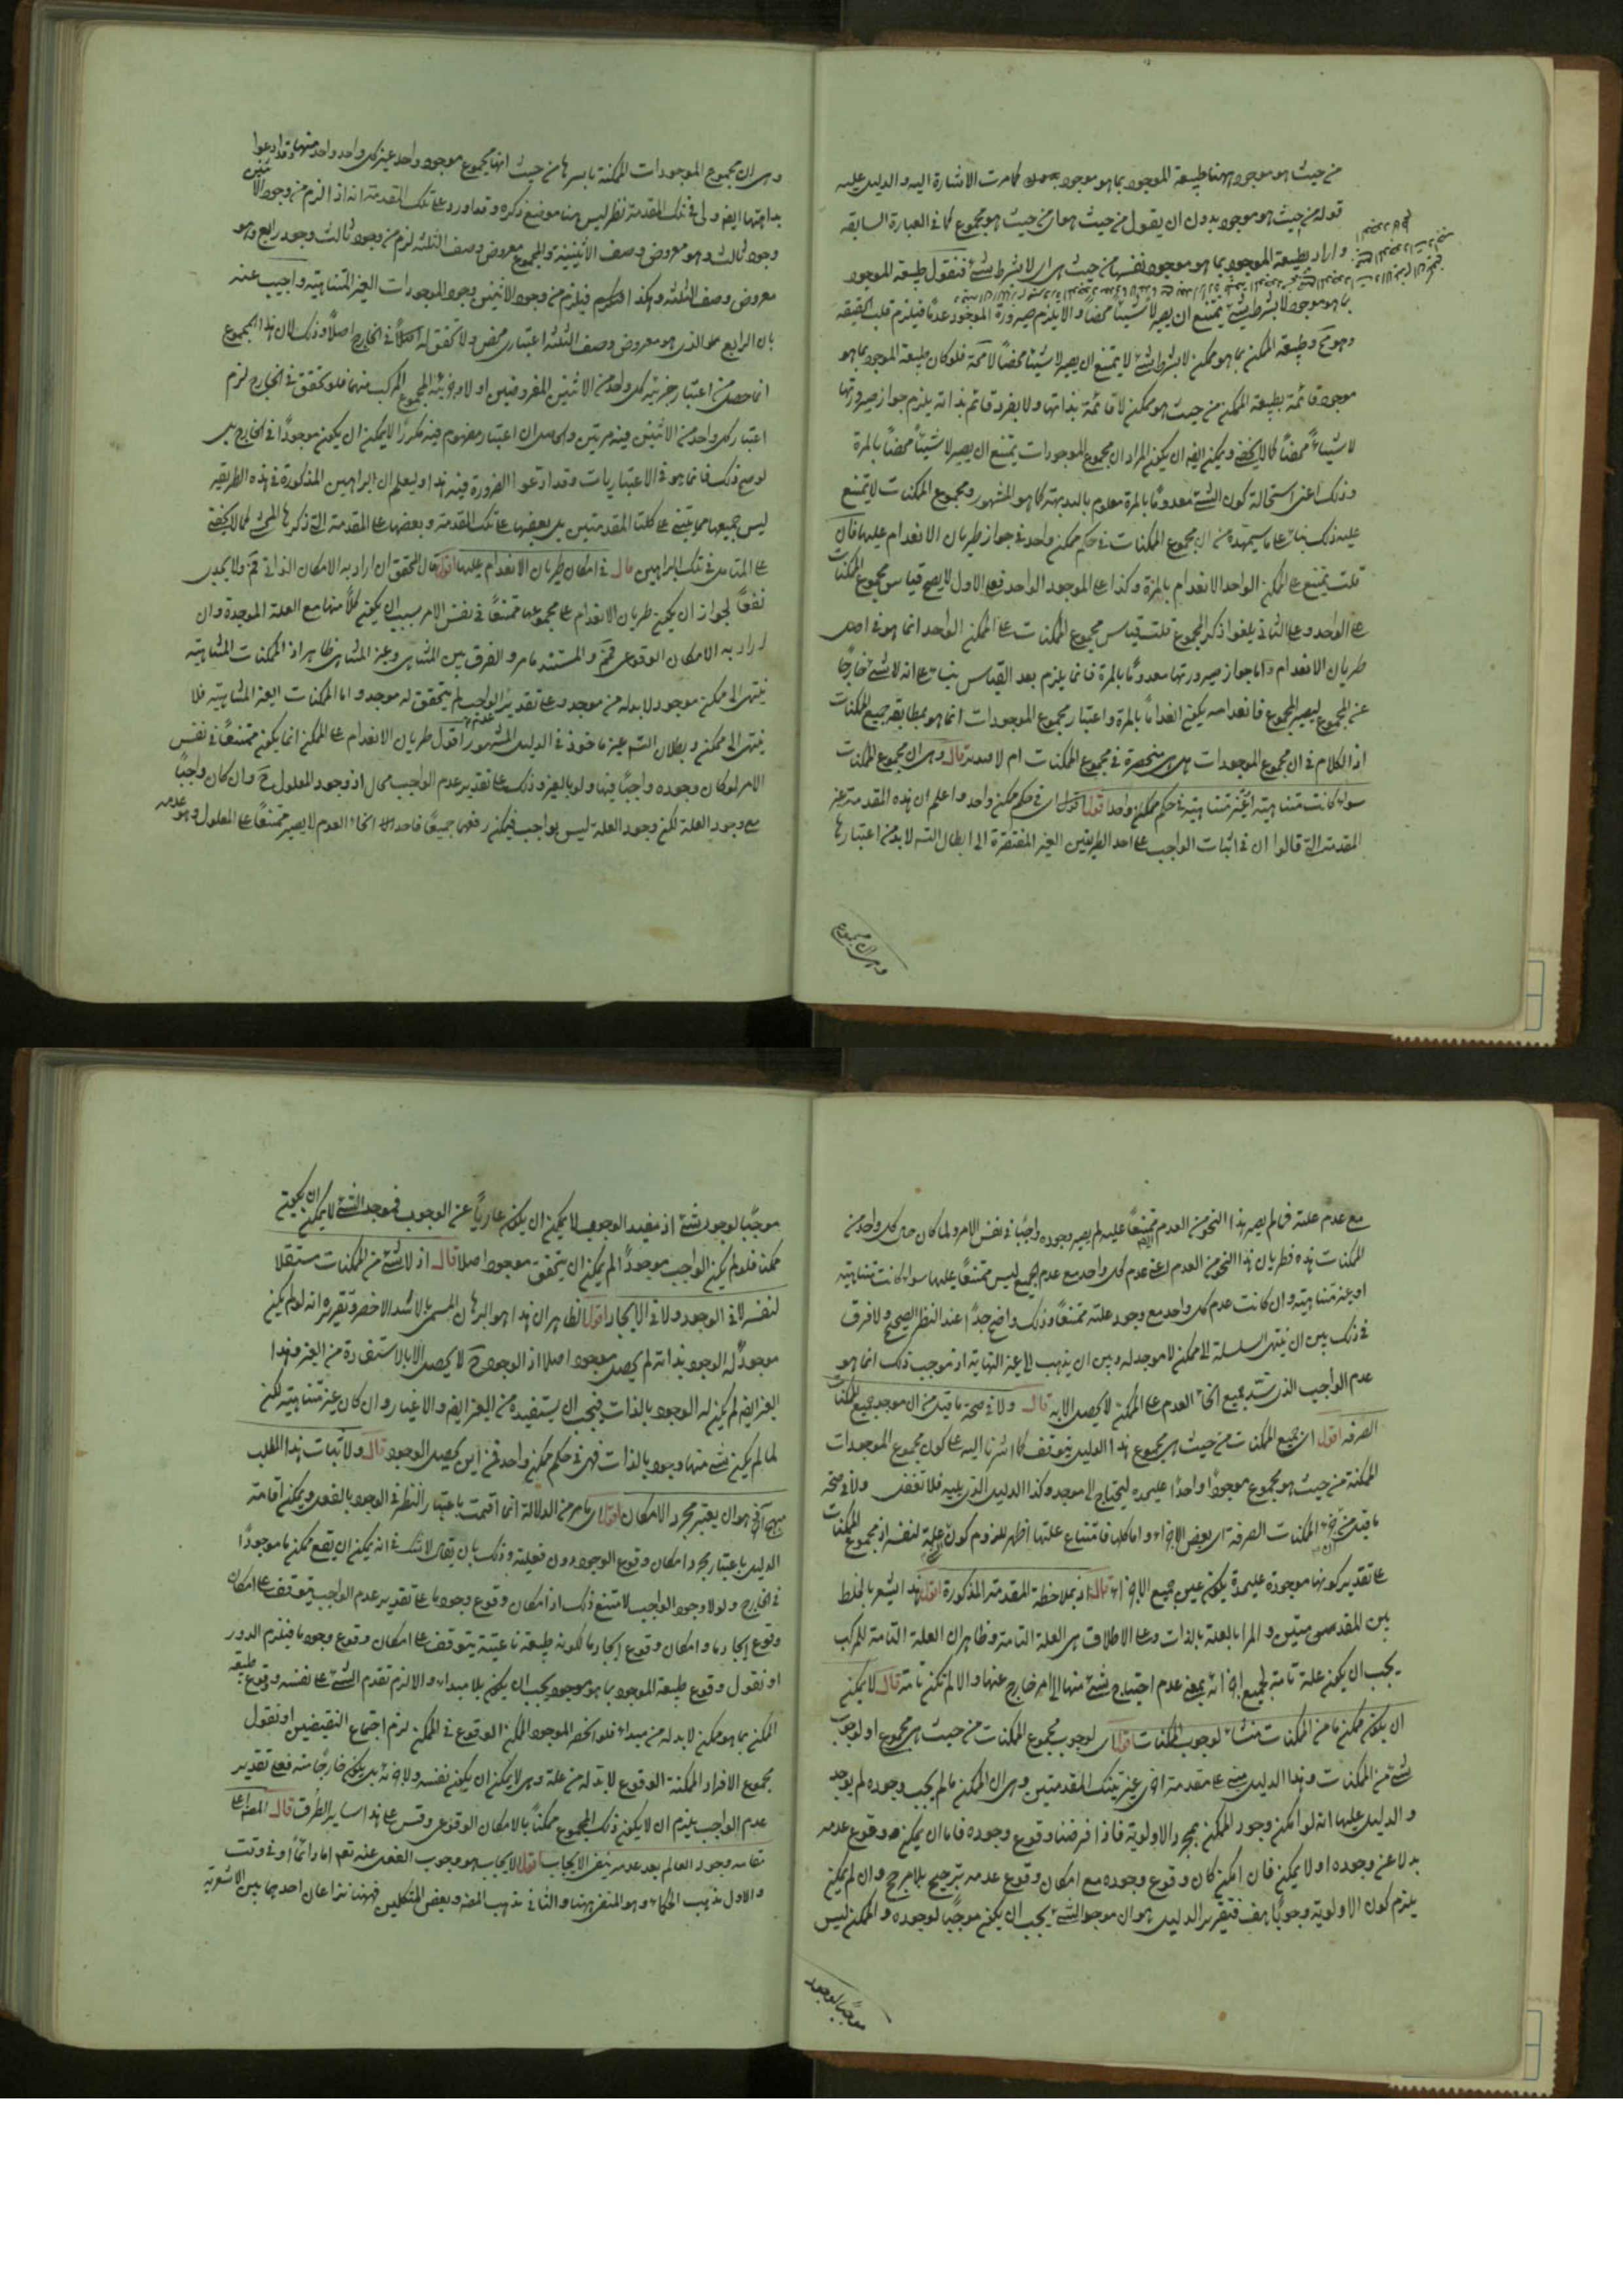 من حيث هو موجود ههنا طبيعة الموجود بما هو موجود كما مرت الاشارة اليه والدليل عليه
قوله من حيث هو موجود بدون ان يقول من حيث هو او من حيث هو مجموع كما في العبارة السابقة
واراد بطبيعة الموجود بما هو موجود نفسها من حيث هي اي لا بشرط شئ فنقول طبيعة الموجود
بما هو موجود لا بشرط شئ يمتنع ان يصير لا شيئا محضا والا يلزم صيرورة الموجود عدما فيلزم قلب الحقيقة
وهو مح وطبيعة الممكن بما هو ممكن لا بشرط شئ لا يمتنع ان يصير لا شيئا محضا لا محة فلو كان طبيعة الموجود بما هو
موجود قائمة بطبيعة الممكن من حيث هو ممكن لا قائمة بذاتها ولا بفرد قائم بذاته يلزم جواز صيرورتها
لا شيئا محضا كما لا يخفى ويمكن ايضا ان يكون المراد ان مجموع الموجودات يمتنع ان يصير لا شيئا محضا بالمرة
وذلك اعنى استحالة كون الشئ معدوما بالمرة معلوم بالبديهة كما هو المشهور ومجموع الممكنات لا يمتنع
عليه ذلك بناء على ما سيمهده من ان مجموع الممكنات في حكم ممكن واحد في جواز طريان الانعدام عليها فان
قلت يمتنع على الممكن الواحد الانعدام بالمرة وكذا على الموجود الواحد فعلى الاول لا يصح قياس مجموع الممكنات
على الواحد وعلى الثاني يلغو اذ ذكر المجموع قلت قياس مجموع الممكنات على الممكن الواحد انما هو في اصل
طريان الانعدام واما جواز صيرورتها معدوما بالمرة فانما يلزم بعد القياس بناء على انه لا شئ خارجا
عن المجموع ليصير المجموع فانعدامه يكون انعداما بالمرة واعتبار مجموع الموجودات انما هو بمطابقة جميع الممكنات
اذ الكلام في ان مجموع الموجودات هل هي منحصرة في مجموع الممكنات ام لا قال وهي ان مجموع الممكنات
سواء كانت متناهية او غير متناهية في حكم ممكن واحد اقول اي في حكم ممكن واحد واعلم ان هذه المقدمة غير
المقدمة التي قالوا ان في اثبات الواجب على احد الطريقين الغير المفتقرة الى ابطال التسلسل لا بد من اعتبارها
وهي ان مجموع
وهي ان مجموع الموجودات الممكنة باسرها من حيث انها مجموع موجود واحد غير كل واحد واحد منها وقد ادعوا
بداهتها ايضا ولي في تلك المقدمة نظر ليس هنا موضع ذكره وقد اورد على تلك المقدمة انه اذا لزم من وجود الاثنين
وجود ثالث وهو معروض وصف الاثنينية والمجموع معروض وصف الثلثة لزم من وجود ثالث وجود رابع وهو
معروض وصف الثلثة وهكذا فيلزم من وجود الاثنين وجود الموجودات الغير المتناهية واجيب عنه
بان الرابع الذي هو معروض وصف الثلثة اعتباري محض ولا تحقق له اصلا في الخارج اصلا وذلك لان هذا المجموع
انما حصل من اعتبار جزئية كل واحد من الاثنين المفروضين اولا وجزئية المجموع المركب منهما فلو تحقق في الخارج لزم
اعتبار كل واحد من الاثنين فيه مرتين والحاصل ان اعتبار مفهوم فيه مكررا لا يمكن ان يكون موجودا في الخارج بل
لو صح ذلك فانما هو في الاعتباريات وقد ادعوا الضرورة فيه هذا وليعلم ان البراهين المذكورة في هذه الطريقة
ليس جميعها مما يبتني على كلتا المقدمتين بل بعضها على تلك المقدمة وبعضها على المقدمة التي ذكرها المحشى كما لا يخفى
على المتامل في تلك البراهين قال في امكان طريان الانعدام عليها اقول قال المحقق ان اراد به الامكان الذاتي فم ولا يجدى
نفعا لجواز ان يكون طريان الانعدام على مجموعها ممتنعا في نفس الامر بسبب ان يكون كلا منها مع العلة الموجدة وان
اراد به الامكان الوقوعي فمم والمستند ما مر والفرق بين المتناهي وغير المتناهي ظاهر اذ الممكنات المتناهية
ينتهى الى ممكن موجود لا بد له من موجد وعلى تقدير عدم الواجب لم يتحقق له موجد واما الممكنات الغير المتناهية فلا
ينتهى الى ممكن وبطلان التسلسل غير ماخوذ في الدليل المشهور اقول طريان الانعدام على الممكن انما يكون ممتنعا في نفس
الامر لو كان وجوده واجبا فيها ولو بالغير وذلك على تقدير عدم الواجب محال اذ وجود المعلول ح وان كان واجبا
مع وجود العلة لكن وجود العلة ليس بواجب فيمكن رفعهما جميعا فاحد انحاء العدم لا يصير ممتنعا على المعلول وهو عدمه
مع عدم علته فما لم يصر هذا النحو من العدم ممتنعا عليه لم يصر وجوده واجبا في نفس الامر ولما كان حال كل واحد من
الممكنات هذه فطريان هذا النحو من العدم اعنى عدم كل واحد مع عدم الجميع ليس ممتنعا عليها سواء كانت متناهية
او غير متناهية وان كانت عدم كل واحد مع وجود علته ممتنعا وذلك واضح جدا عند النظر الصحيح ولا فرق
في ذلك بين ان ينتهى السلسلة الى ممكن لا موجد له وبين ان يذهب الى غير النهاية اذ موجب ذلك انما هو
عدم الواجب الذي سد جميع انحاء العدم على الممكن لا يحصل الا به قال ولا في صحة ما قيل من ان موجد جميع الممكنات
الصرفة اقول اي جميع الممكنات من حيث هي مجموع هذا الدليل يتوقف كما اشرنا اليه على كون مجموع الموجودات
الممكنة من حيث هو مجموع موجودا واحدا عليحدة ليحتاج الى موجد وكذا الدليل الذي يليه فلا تغفل ولا في صحة
ما قيل من ان الممكنات الصرفة اي بعض الاجزاء واما كلها فامتناع علتها اظهر للزوم كون الشئ علة لنفسه اذ مجموع الممكنات
على تقدير كونها موجودة عليحدة يكون عين جميع الاجزاء قال اذ بملاحظة المقدمة المذكورة اقول هذا يشعر بالخلط
بين المقدمتين والمراد بالعلة بالذات وعلى الاطلاق هي العلة التامة وظاهر ان العلة التامة للمركب
يجب ان يكون علة تامة لجميع اجزائه بمعنى عدم احتياج شئ منها الى امر خارج عنها والا لم تكن تامة قال لا يمكن
ان يكون ممكن ما من الممكنات منشاء لوجوب الممكنات اقول اي لوجوب مجموع الممكنات من حيث هي مجموع او لوجوب
شئ من الممكنات وهذا الدليل مبنى على مقدمة اخرى غير تينك المقدمتين وهي ان الممكن ما لم يجب وجوده لم يوجد
والدليل عليها انه لو امكن وجود الممكن بمجرد الاولوية فاذا فرضنا وقوع وجوده فاما ان يمكن وقوع عدمه
بدلا عن وجوده او لا يمكن فان امكن كان وقوع وجوده مع امكان وقوع عدمه ترجيح بلا مرجح وان لم يمكن
يلزم كون الاولوية وجوبا هف فتقرير الدليل هو ان موجد الشئ يجب ان يكون موجبا لوجوده والممكن ليس
موجبا لوجود
موجبا لوجود شئ اذ مفيد الوجوب لا يمكن ان يكون عاريا عن الوجوب فموجد الشئ لا يمكن ان يكون
ممكنا فلو لم يكن الواجب موجودا لم يمكن ان يتحقق موجود اصلا قال اذ لا شئ من الممكنات مستقلا
لنفسه لا في الوجود ولا في الايجاد اقول الظاهر ان هذا هو البرهان المسمى بالاسد الاخصر وتقريره انه لو لم يكن
موجود له الوجود بذاته لم يحصل موجود اصلا اذ الوجود ح لا يحصل الا بالاستفادة من الغير وهذا
الغير ايضا لم يكن له الوجود بالذات فيجب ان يستفيده من الغير ايضا والاغيار وان كان غير متناهية لكن
لما لم يكن شئ منها وجود بالذات فهي في حكم ممكن واحد فمن اين يحصل الوجود قال ولاثبات هذا المطلب
منهج آخر هو ان يعتبر مجرد الامكان اقول اي ما مر من الدلالة انما اقيمت باعتبار النظر في الوجود بالفعل ويمكن اقامة
الدليل باعتبار مجرد امكان وقوع الوجود دون فعلية وذلك بان يقال لا شك في انه يمكن ان يقع ممكن ما موجودا
في الخارج ولولا وجود الواجب لامتنع ذلك اذ امكان وقوع وجود ما على تقدير عدم الواجب يتوقف على امكان
وقوع ايجاد ما وامكان وقوع ايجاد ما لكونه طبيعة ناعتية يتوقف على امكان وقوع وجود ما فيلزم الدور
او نقول وقوع طبيعة الموجود بما هو موجود يجب ان يكون بلا مبداء والا لزم تقدم الشئ على نفسه ووقوع طبيعة
الممكن بما هو ممكن لا بد له من مبداء فلو انحصر الموجود الممكن الوقوع في الممكن لزم اجتماع النقيضين او نقول
مجموع الافراد الممكنة الوقوع لا بد له من علة وهي لا يمكن ان يكون نفسه ولا جزئه بل يكون خارجا منه فعلى تقدير
عدم الواجب يلزم ان لا يكون ذلك المجموع ممكنا بالامكان الوقوعي وقس على هذا ساير الطرق قال المصنف
وجود العالم بعد عدمه ينفى الايجاب اقول الايجاب هو وجوب الفعل عنه تعم اما دائما او في وقت
والاول مذهب الحكماء وهو المنفى ههنا والثاني مذهب المصنف وبعض المتكلمين فههنا نزاعان احدهما بين الاشعرية